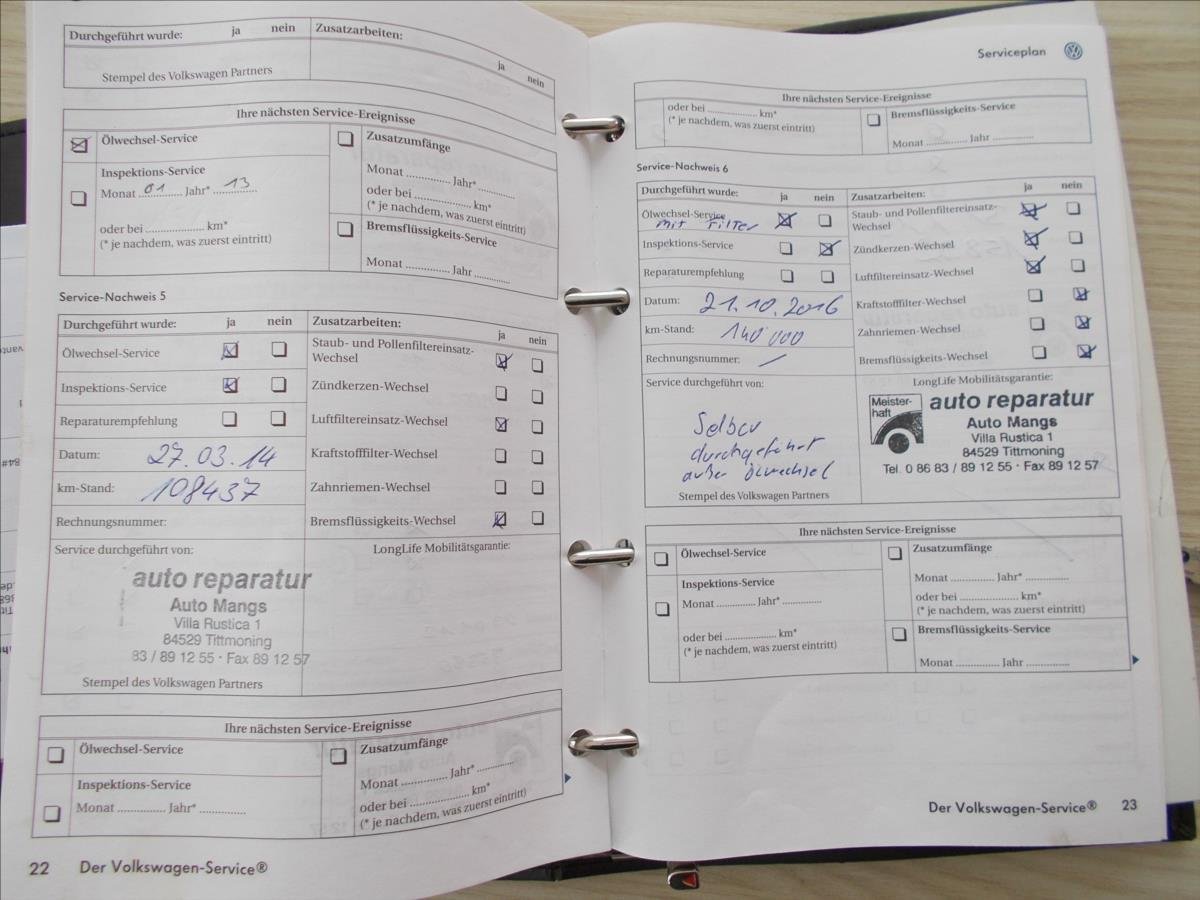 Durchgeführt wurde: ja nein Zusatzarbeiten:
ja nein
Stempel des Volkswagen Partners
Ihre nächsten Service-Ereignisse
Ölwechsel-Service
Zusatzumfänge
Inspektions-Service
Monat 01 Jahr* 13
Monat ............ Jahr* ............
oder bei .................... km*
(* je nachdem, was zuerst eintritt)
oder bei .................... km*
(* je nachdem, was zuerst eintritt)
Bremsflüssigkeits-Service
Monat ............ Jahr ............
Service-Nachweis 5
Durchgeführt wurde: ja nein Zusatzarbeiten: ja nein
Ölwechsel-Service
Staub- und Pollenfiltereinsatz-
Wechsel
Inspektions-Service
Zündkerzen-Wechsel
Reparaturempfehlung
Luftfiltereinsatz-Wechsel
Datum: 27.03.14
Kraftstofffilter-Wechsel
km-Stand: 108437
Zahnriemen-Wechsel
Rechnungsnummer:
Bremsflüssigkeits-Wechsel
Service durchgeführt von:
LongLife Mobilitätsgarantie:
auto reparatur
Auto Mangs
Villa Rustica 1
84529 Tittmoning
83 / 89 12 55 · Fax 89 12 57
Stempel des Volkswagen Partners
Ihre nächsten Service-Ereignisse
Ölwechsel-Service
Zusatzumfänge
Inspektions-Service
Monat ............ Jahr* ............
Monat ............ Jahr* ............
oder bei .................... km*
(* je nachdem, was zuerst eintritt)
22 Der Volkswagen-Service®
Serviceplan
Ihre nächsten Service-Ereignisse
oder bei .................... km*
(* je nachdem, was zuerst eintritt)
Bremsflüssigkeits-Service
Monat ............ Jahr ............
Service-Nachweis 6
Durchgeführt wurde: ja nein Zusatzarbeiten: ja nein
Ölwechsel-Service
mit Filter
Staub- und Pollenfiltereinsatz-
Wechsel
Inspektions-Service
Zündkerzen-Wechsel
Reparaturempfehlung
Luftfiltereinsatz-Wechsel
Datum: 21.10.2016
Kraftstofffilter-Wechsel
km-Stand: 140'000
Zahnriemen-Wechsel
Rechnungsnummer: /
Bremsflüssigkeits-Wechsel
Service durchgeführt von:
LongLife Mobilitätsgarantie:
Selber
durchgeführt
außer ölwechsel
Stempel des Volkswagen Partners
Meister-
haft
auto reparatur
Auto Mangs
Villa Rustica 1
84529 Tittmoning
Tel. 0 86 83 / 89 12 55 · Fax 89 12 57
Ihre nächsten Service-Ereignisse
Ölwechsel-Service
Zusatzumfänge
Inspektions-Service
Monat ............ Jahr* ............
Monat ............ Jahr* ............
oder bei .................... km*
(* je nachdem, was zuerst eintritt)
oder bei .................... km*
(* je nachdem, was zuerst eintritt)
Bremsflüssigkeits-Service
Monat ............ Jahr ............
Der Volkswagen-Service® 23